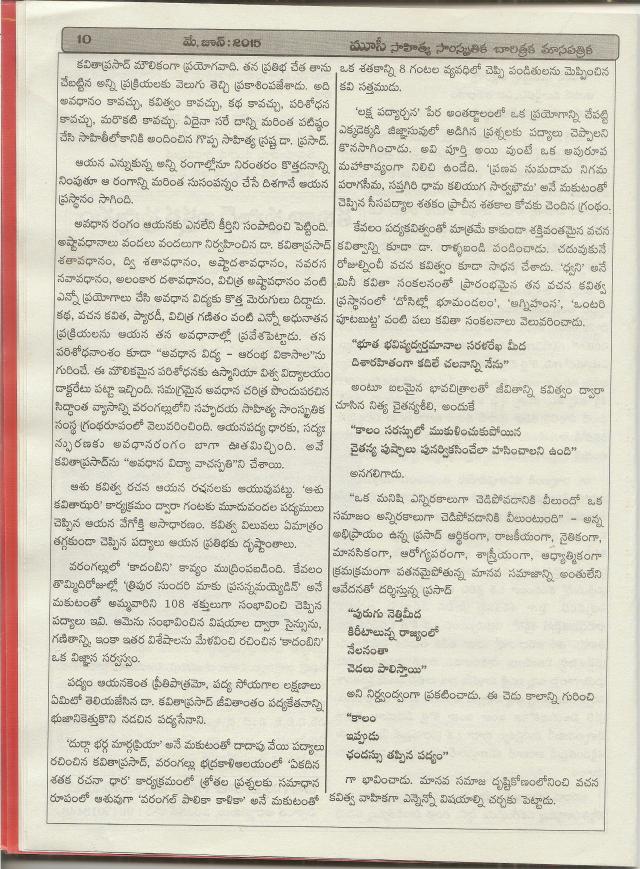 10
మే, జూన్ : 2015
మూసీ సాహిత్య సాంస్కృతిక చారిత్రక మాసపత్రిక
కవితాప్రసాద్ మౌలికంగా ప్రయోగవాది. తన ప్రతిభ చేత తాను
చేబట్టిన అన్ని ప్రక్రియలకు వెలుగు తెచ్చి ప్రకాశింపజేశాడు. అది
అవధానం కావచ్చు, కవిత్వం కావచ్చు, కథ కావచ్చు, పరిశోధన
కావచ్చు, మరొకటి కావచ్చు. ఏదైనా సరే దాన్ని మరింత పటిష్ఠం
చేసి సాహితీలోకానికి అందించిన గొప్ప సాహిత్య స్రష్ట డా. ప్రసాద్.
ఆయన ఎన్నుకున్న అన్ని రంగాల్లోనూ నిరంతరం కొత్తదనాన్ని
నింపుతూ ఆ రంగాన్ని మరింత సుసంపన్నం చేసే దిశగానే ఆయన
ప్రస్థానం సాగింది.
అవధాన రంగం ఆయనకు ఎనలేని కీర్తిని సంపాదించి పెట్టింది.
అష్టావధానాలు వందలు వందలుగా నిర్వహించిన డా. కవితాప్రసాద్
శతావధానం, ద్వి శతావధానం, అష్టాదశావధానం, నవరస
నవావధానం, అలంకార దశావధానం, విచిత్ర అష్టావధానం వంటి
ఎన్నో ప్రయోగాలు చేసి అవధాన విద్యకు కొత్త మెరుగులు దిద్దాడు.
కథ, వచన కవిత, ప్యారడీ, విచిత్ర గణితం వంటి ఎన్నో అధునాతన
ప్రక్రియలను ఆయన తన అవధానాల్లో ప్రవేశపెట్టాడు. తన
పరిశోధనాంశం కూడా "అవధాన విద్య – ఆరంభ వికాసాల"ను
గురించే. ఈ మౌలికమైన పరిశోధనకు ఉస్మానియా విశ్వ విద్యాలయం
డాక్టరేటు పట్టా ఇచ్చింది. సమగ్రమైన అవధాన చరిత్ర పొందుపరచిన
సిద్ధాంత వ్యాసాన్ని వరంగల్లులోని సహృదయ సాహిత్య సాంస్కృతిక
సంస్థ గ్రంథరూపంలో వెలువరించింది. ఆయనపద్య ధారకు, సద్యః
స్ఫురణకు అవధానరంగం బాగా ఊతమిచ్చింది. అవే
కవితాప్రసాద్‌ను "అవధాన విద్యా వాచస్పతి"ని చేశాయి.
ఆశు కవిత్వ రచన ఆయన రచనలకు ఆయువుపట్టు. 'ఆశు
కవితాఝరి' కార్యక్రమం ద్వారా గంటకు మూడువందల పద్యములు
చెప్పిన ఆయన వేగోక్తి అసాధారణం. కవిత్వ విలువలు ఏమాత్రం
తగ్గకుండా చెప్పిన పద్యాలు ఆయన ప్రతిభకు దృష్టాంతాలు.
వరంగల్లులో 'కాదంబిని' కావ్యం ముద్రింపబడింది. కేవలం
తొమ్మిదిరోజుల్లో 'త్రిపుర సుందరి మాకు ప్రసన్నమయ్యెడిన్' అనే
మకుటంతో అమ్మవారిని 108 శక్తులుగా సంభావించి చెప్పిన
పద్యాలు ఇవి. ఆమెను సంభావించిన విషయాల ద్వారా సైన్సును,
గణితాన్ని, ఇంకా ఇతర విశేషాలను మేళవించి రచించిన 'కాదంబిని'
ఒక విజ్ఞాన సర్వస్వం.
పద్యం ఆయనకెంత ప్రీతిపాత్రమో, పద్య సోయగాల లక్షణాలు
ఏమిటో తెలియజేసిన డా. కవితాప్రసాద్ జీవితాంతం పద్యకేతనాన్ని
భుజానికెత్తుకొని నడచిన పద్యసేనాని.
'దుర్గా భర్గ మార్గప్రియా' అనే మకుటంతో దాదాపు వేయి పద్యాలు
రచించిన కవితాప్రసాద్, వరంగల్లు భద్రకాళీఆలయంలో 'ఏకదిన
శతక రచనా ధార' కార్యక్రమంలో శ్రోతల ప్రశ్నలకు సమాధాన
రూపంలో ఆశువుగా 'వరంగల్ పాలికా కాళికా' అనే మకుటంతో
ఒక శతకాన్ని 8 గంటల వ్యవధిలో చెప్పి పండితులను మెప్పించిన
కవి సత్తముడు.
'లక్ష పద్యార్చన' పేర అంతర్జాలంలో ఒక ప్రయోగాన్ని చేపట్టి
ఎక్కడెక్కడి జిజ్ఞాసువులో అడిగిన ప్రశ్నలకు పద్యాలు చెప్పాలని
కొనసాగించాడు. అవి పూర్తి అయి వుంటే ఒక అపురూప
మహాకావ్యంగా నిలిచి ఉండేది. 'ప్రణవ సుమదామ నిగమ
పరాగసీమ, సప్తగిరి ధామ కలియుగ సార్వభౌమ' అనే మకుటంతో
చెప్పిన సీసపద్యాల శతకం ప్రాచీన శతకాల కోవకు చెందిన గ్రంథం.
కేవలం పద్యకవిత్వంతో మాత్రమే కాకుండా శక్తివంతమైన వచన
కవిత్వాన్ని కూడా డా. రాళ్ళబండి పండించాడు. చదువుకునే
రోజుల్నించీ వచన కవిత్వం కూడా సాధన చేశాడు. 'ధ్వని' అనే
మినీ కవితా సంకలనంతో ప్రారంభమైన తన వచన కవిత్వ
ప్రస్థానంలో 'దోసిట్లో భూమండలం', 'అగ్నిహంస', 'ఒంటరి
పూటబుట్ట' వంటి పలు కవితా సంకలనాలు వెలువరించాడు.
"భూత భవిష్యద్వర్తమానాల సరళరేఖ మీద
దిశారహితంగా కదిలే చలనాన్ని నేను"
అంటూ బలమైన భావచిత్రాలతో జీవితాన్ని కవిత్వం ద్వారా
చూసిన నిత్య చైతన్యశీలి, అందుకే
"కాలం సరస్సులో ముకుళించుకుపోయిన
చైతన్య పుష్పాలు పునర్వికసించేలా హసించాలని ఉంది"
అనగలిగాడు.
"ఒక మనిషి ఎన్నిరకాలుగా చెడిపోవడానికి వీలుందో ఒక
సమాజం అన్నిరకాలుగా చెడిపోవడానికి వీలుంటుంది" – అన్న
అభిప్రాయం ఉన్న ప్రసాద్ ఆర్థికంగా, రాజకీయంగా, నైతికంగా,
మానసికంగా, ఆరోగ్యపరంగా, శాస్త్రీయంగా, ఆధ్యాత్మికంగా
క్రమక్రమంగా పతనమైపోతున్న మానవ సమాజాన్ని అంతులేని
ఆవేదనతో దర్శిస్తున్న ప్రసాద్
"పురుగు నెత్తిమీద
కిరీటాలున్న రాజ్యంలో
నేలనంతా
చెదలు పాలిస్తాయి"
అని నిర్ద్వంద్వంగా ప్రకటించాడు. ఈ చెడు కాలాన్ని గురించి
"కాలం
ఇప్పుడు
ఛందస్సు తప్పిన పద్యం"
గా భావించాడు. మానవ సమాజ దృష్టికోణంలోనించి వచన
కవిత్వ వాహికగా ఎన్నెన్నో విషయాల్ని చర్చకు పెట్టాడు.